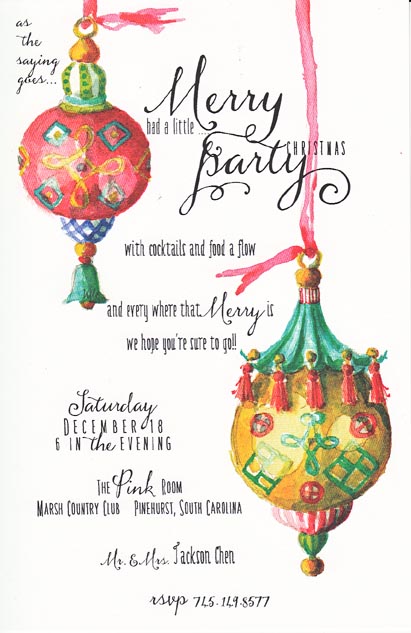 as
the
saying
goes...
Merry
had a little ...
Christmas
Party
with cocktails and food a flow
and every where that Merry is
we hope you're sure to go!!
Saturday
December 18
6 in the evening
The Pink Room
Marsh Country Club Pinehurst, South Carolina
Mr. & Mrs. Jackson Chen
rsvp 745.149.8577